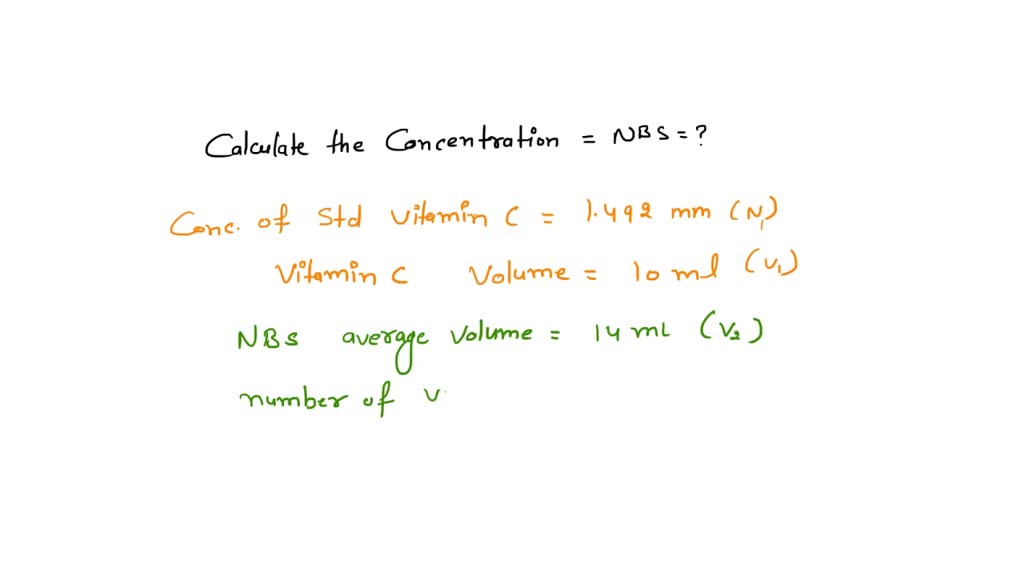 Calculate the Concentration = NBS = ?
Conc. of Std Vitamin C = 1.492 mm (N1)
Vitamin C Volume = 10 ml (V1)
NBS average Volume = 14 mL (V2)
number of v